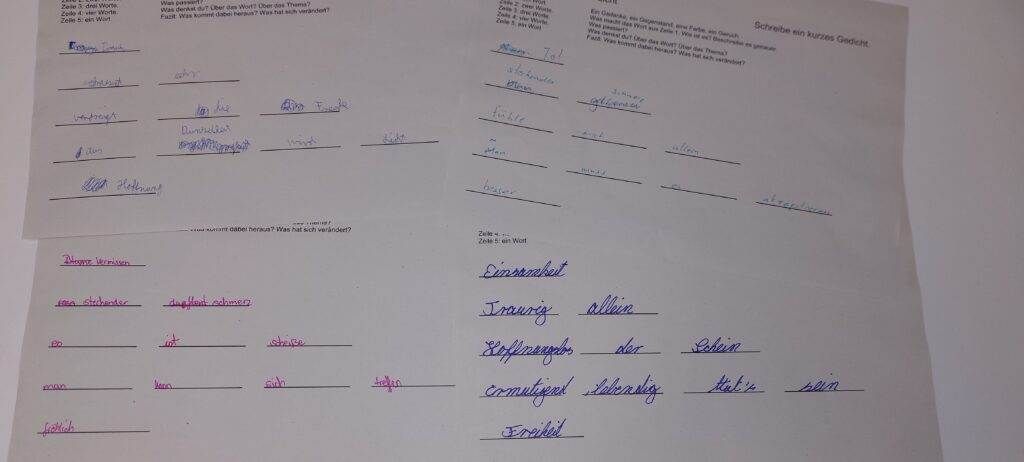 Zeile 3: drei Worte.
Zeile 4: vier Worte.
Zeile 5: ein Wort.
Was passiert?
Was denkst du? Über das Wort? Über das Thema?
Fazit: Was kommt dabei heraus? Was hat sich verändert?
vertreibt die Freude
das Dunkel wird Licht
Hoffnung
Schreibe ein kurzes Gedicht.
Zeile 2: zwei Worte.
Zeile 3: drei Worte.
Zeile 4: vier Worte.
Zeile 5: ein Wort
Ein Gedanke, ein Gegenstand, eine Farbe, ein Geruch
Was macht das Wort aus Zeile 1. Wie ist es? Beschreibe es genauer.
Was passiert?
Was denkst du? Über das Wort? Über das Thema?
Fazit: Was kommt dabei heraus? Was hat sich verändert?
Tod
stechender
fühle mich allein
man muss es akzeptieren
besser
kommt dabei heraus? Was hat sich verändert?
Vermissen
stechender schmerz
es ist scheiße
man kann sich treffen
fröhlich
Zeile 4:
Zeile 5: ein Wort
Einsamkeit
Traurig allein
Hoffnungslos der Schein
ermutigend, lebendig tut's sein
Freiheit